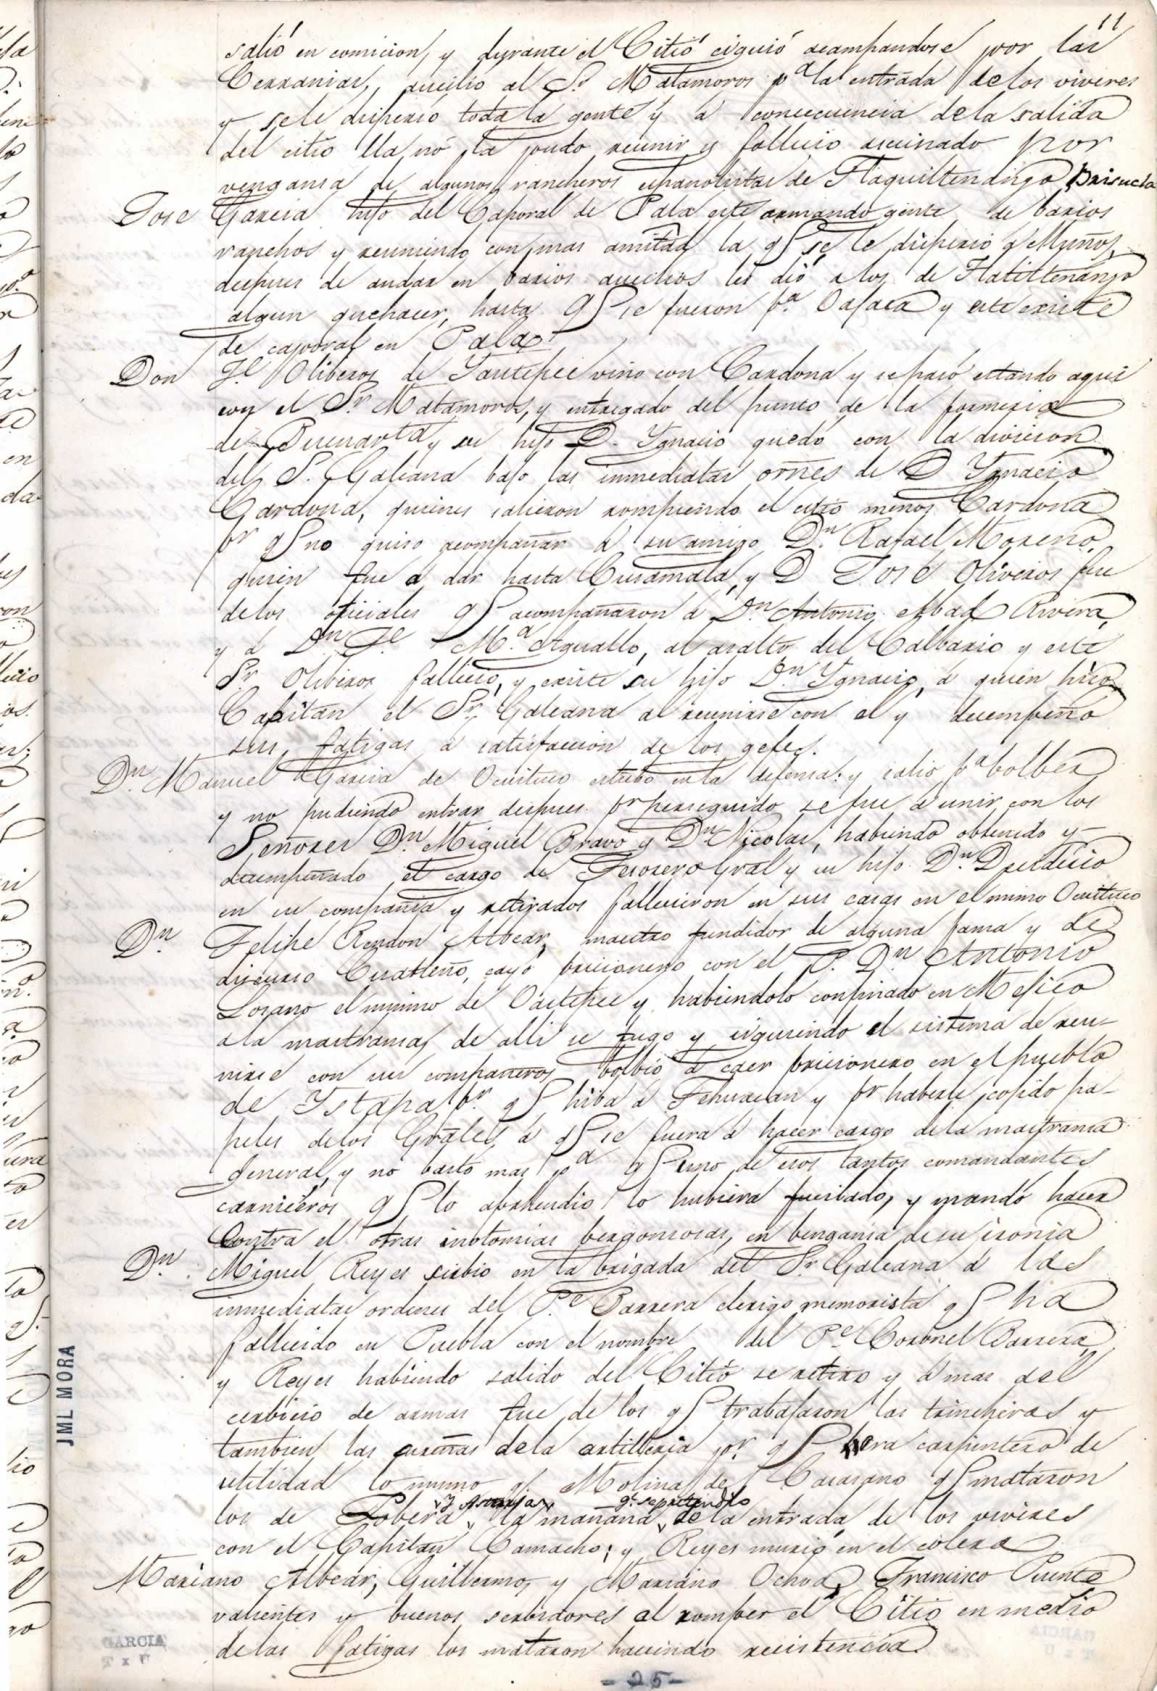 11
salió en comicion, y durante el Citio ciguió acampandose por las
Cerranias, aucilio al Sr Matamoros pa la entrada de los viveres
y se le disperso toda la gente y a concecuencia de la salida
del citio lla nó la pudo reunir y fallecio acecinado por
vengansa de algunos rancheros españolistas de Tlaquiltenango
Jose Garcia hijo del Caporal de Pala gefe armando gente de barios
ranchos y reuniendo con mas amistad la q se le disperso q Muños,
despues de andar en barios les dió a los de Tlatiltenango
algun quehacer, hasta q se fueron pa Oajaca y este existe
de caporal en Pala.
Don Je Oliberos de Yautepec vino con Cardona y se pasó estando aqui
con el Sr Matamoros, y entregado del punto de la
de Buenavista y su hijo D. Ygnacio quedó con la divicion
del S. Galeana bajo las inmediatas ornes de D Ygnacio
Cardona, quienes salieron rompiendo el citio menos Cardona
pr q no quiso acompañar á su amigo Dn Rafael Moreno,
quien fue a dar hasta Cusamala, y D José Oliveros fue
de los oficiales q acompañaron á Dn Antonio Abad Rivera,
y á Dn Je Ma Aguallo, al asalto del Calbario y este
Sr Oliberos fallecio, y existe su hijo Dn Ygnacio, á quien hiso
Capitan el Sr Galeana al reunirse con el y decempeño
sus fatigas á satisfaccion de los gefes.
Dn Manuel Garcia de Ocuituco estubo en la defensa: y salio pa bolber
y no pudiendo entrar despues pr perseguido se fue á unir con los
Señores Dn Miguel Bravo y Dn Nicolas, habiendo obtenido y
decempeñado el cargo de Tesorero Gral y su hijo Dn Desiderio
en su compañia y retirados fallecieron en sus casas en el mismo Ocuituco
Dn Felipe Rendon Albear, maestro fundidor de alguna fama y de
discurso Cuautleño, cayó pricionero con el P. Dn Antonio
Losano el mismo de Oastepec y habiendolo confinado en Mejico
a la maestransa, de alli se fugo y ciguiendo el sistema de reu-
nirse con sus compañeros bolbió á caer pricionero en el pueblo
de Istapa pr q hiba á Tehuacan y pr haberle cojido pa-
peles de los Grales á q se fuera á hacer cargo de la maestransa
general, y no basto mas pa q uno de esos tantos comandantes
carniceros q lo aprehendio lo hubiera fucilado, y mando hacer
contra el otras inotomias bergonsosas, en bengansa de su ironia
Dn Miguel Reyes sirbio en la brigada del Sr Galeana á las
inmediatas ordenes del Pe Barrera clerigo memorista q ha
fallecido en Puebla con el nombre del Pe Coronel Barrera,
y Reyes habiendo salido del Citio se retiro y á mas del
cerbicio de armas fue de los q trabajaron las trincheras y
tambien las cureñas de la artilleria por q hera carpintero de
utilidad lo mismo q Molina de Casasano q mataron
los de Lobera y Araujo la mañana de la entrada de los viveres
con el Capitan Camacho; y Reyes murió en el colera
Mariano Albear, Guillermo, y Mariano Ochoa, Francisco Puente
valientes y buenos serbidores al romper el Citio en medio
de las fatigas los mataron haciendo recistencia.
JML MORA
GARCIA
- 25 -